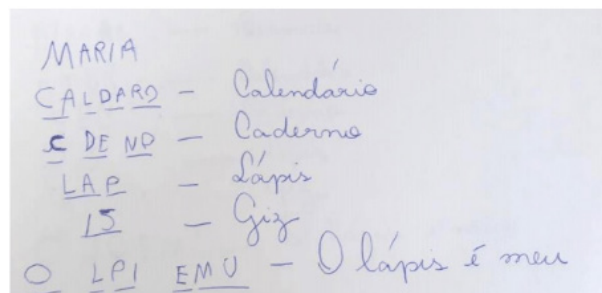 MARIA
CALDARO - Calendário
C DE NO - Caderno
LAP - Lápis
IS - Giz
O LPI EMU - O lápis é meu